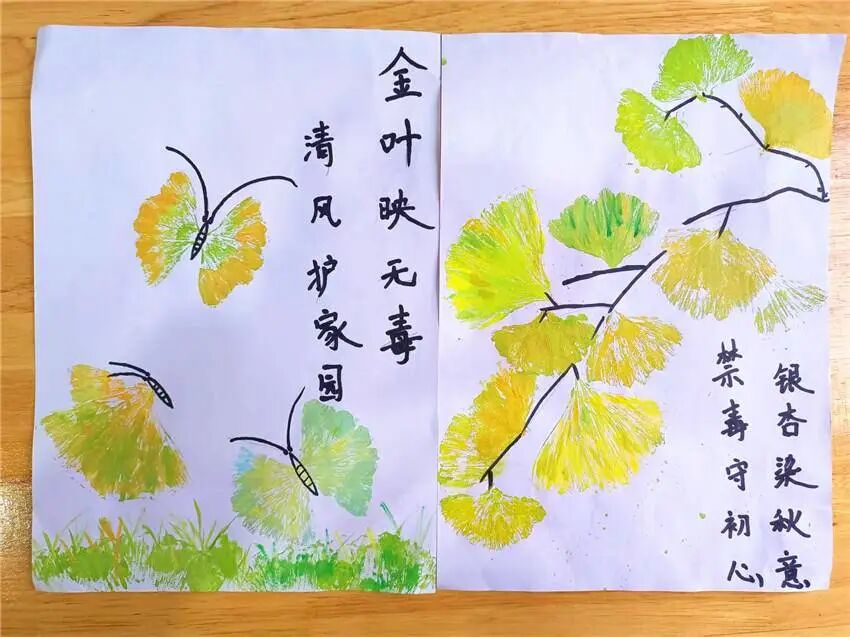 金叶映无毒
清风护家园
银杏染秋意
禁毒守初心